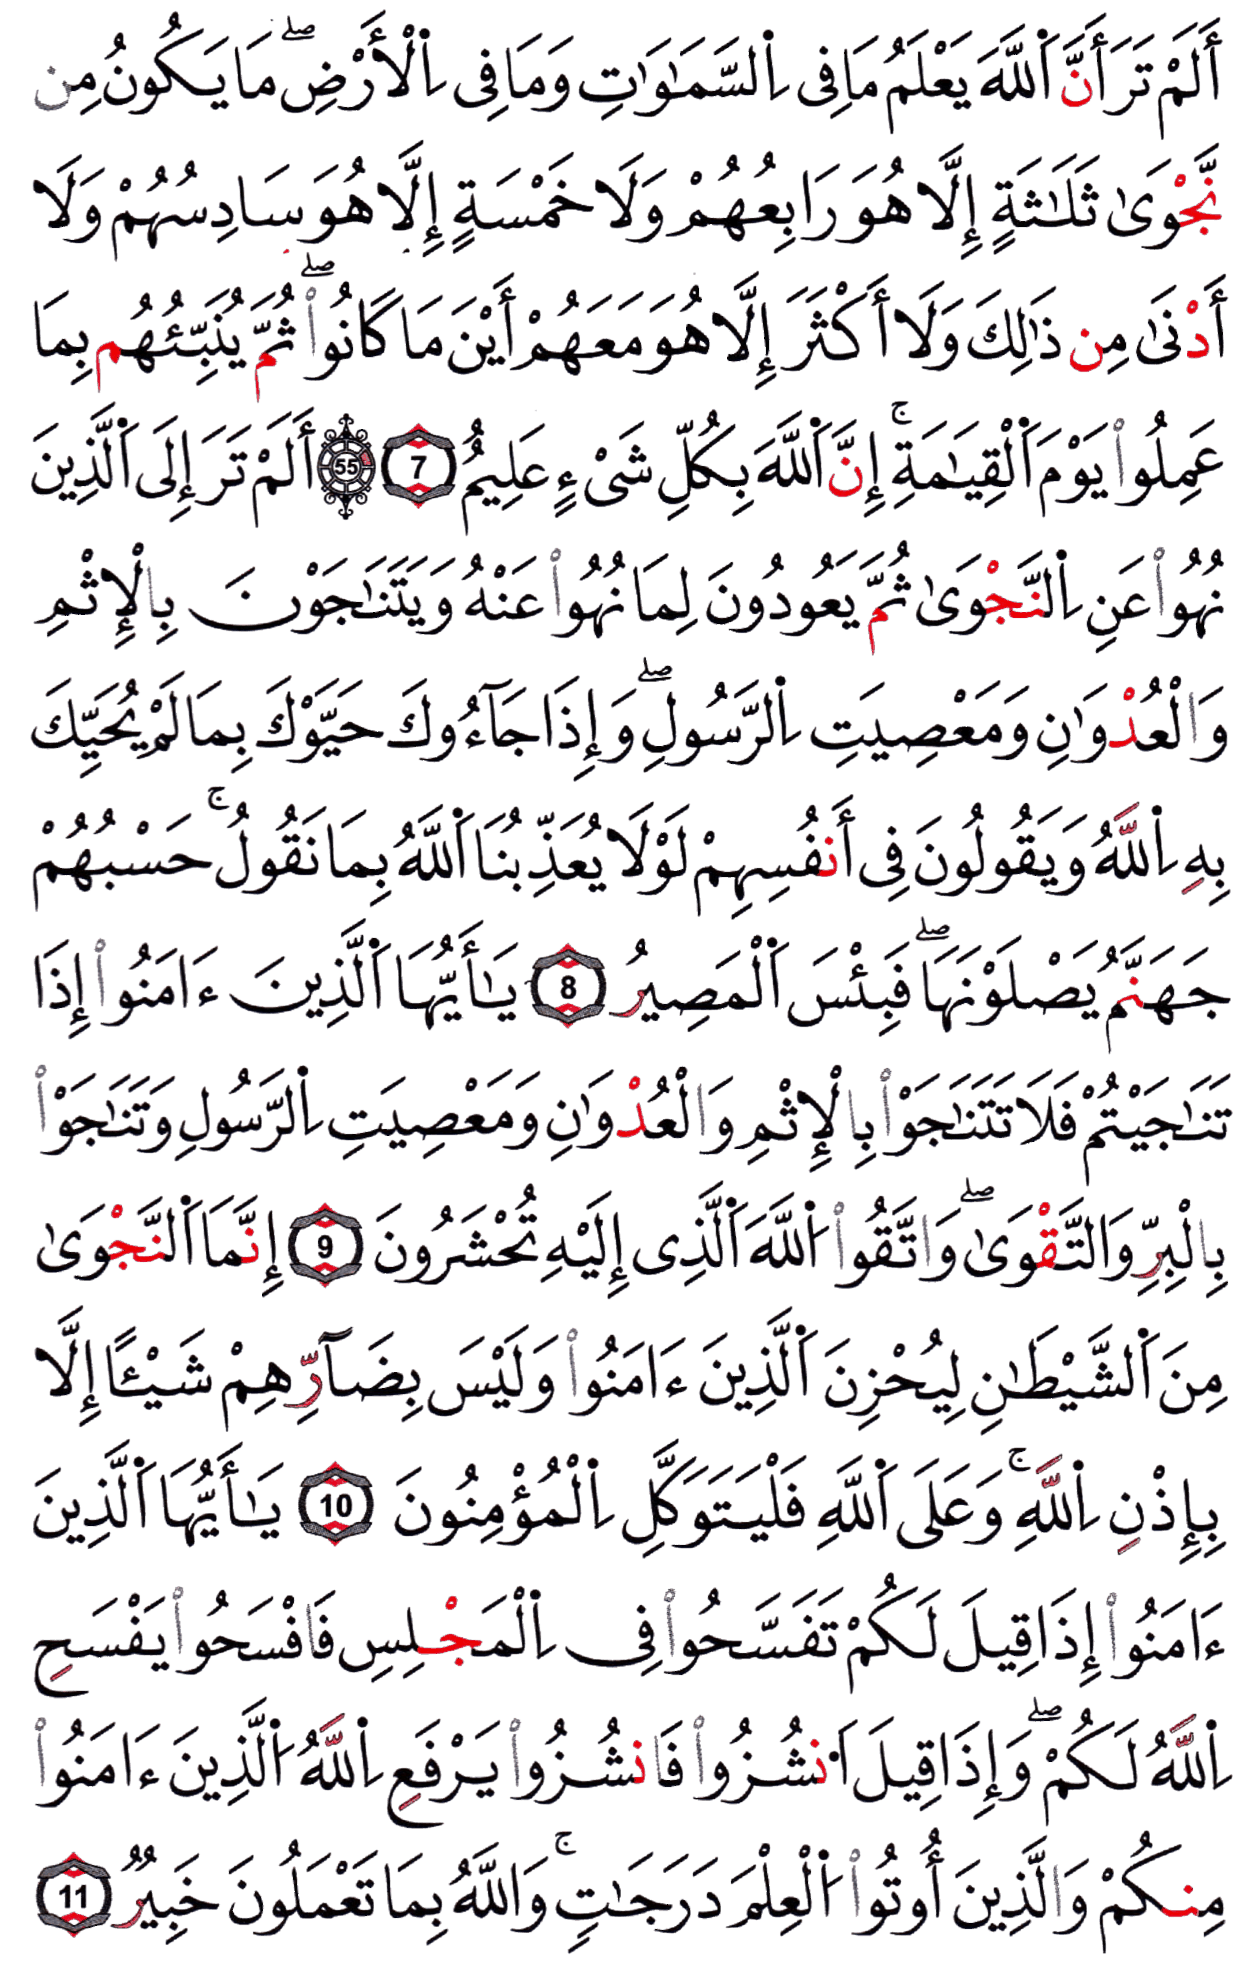 أَلَمْ تَرَ أَنَّ اَ۬للَّهَ يَعْلَمُ مَا فِى اِ۬لسَّمَٰوَٰتِ وَمَا فِى اِ۬لْأَرْضِۖ مَا يَكُونُ مِن
نَّجْوَىٰ ثَلَٰثَةٍ إِلَّا هُوَ رَابِعُهُمْ وَلَا خَمْسَةٍ إِلَّا هُوَ سَادِسُهُمْ وَلَا
أَدْنَىٰ مِن ذَٰلِكَ وَلَا أَكْثَرَ إِلَّا هُوَ مَعَهُمْ أَيْنَ مَا كَانُواْۖ ثُمَّ يُنَبِّئُهُم بِمَا
عَمِلُواْ يَوْمَ اَ۬لْقِيَٰمَةِۚ إِنَّ اَ۬للَّهَ بِكُلِّ شَىْءٍ عَلِيمٌ 7 55 أَلَمْ تَرَ إِلَى اَ۬لَّذِينَ
نُهُواْ عَنِ اِ۬لنَّجْوَىٰ ثُمَّ يَعُودُونَ لِمَا نُهُواْ عَنْهُ وَيَتَنَٰجَوْنَ بِالْإِثْمِ
وَالْعُدْوَٰنِ وَمَعْصِيَتِ اِ۬لرَّسُولِۖ وَإِذَا جَآءُوكَ حَيَّوْكَ بِمَا لَمْ يُحَيِّكَ
بِهِ اِ۬للَّهُ وَيَقُولُونَ فِى أَنفُسِهِمْ لَوْلَا يُعَذِّبُنَا اَ۬للَّهُ بِمَا نَقُولُۚ حَسْبُهُمْ
جَهَنَّمُ يَصْلَوْنَهَاۖ فَبِئْسَ اَ۬لْمَصِيرُ 8 يَٰأَيُّهَا اَ۬لَّذِينَ ءَامَنُواْ إِذَا
تَنَٰجَيْتُمْ فَلَا تَتَنَٰجَوْاْ بِالْإِثْمِ وَالْعُدْوَٰنِ وَمَعْصِيَتِ اِ۬لرَّسُولِ وَتَنَٰجَوْاْ
بِالْبِرِّ وَالتَّقْوَىٰۖ وَاتَّقُواْ اُ۬للَّهَ اَ۬لَّذِى إِلَيْهِ تُحْشَرُونَ 9 إِنَّمَا اَ۬لنَّجْوَىٰ
مِنَ اَ۬لشَّيْطَٰنِ لِيُحْزِنَ اَ۬لَّذِينَ ءَامَنُواْ وَلَيْسَ بِضَآرِّهِمْ شَيْـًٔا إِلَّا
بِإِذْنِ اِ۬للَّهِۚ وَعَلَى اَ۬للَّهِ فَلْيَتَوَكَّلِ اِ۬لْمُؤْمِنُونَ 10 يَٰأَيُّهَا اَ۬لَّذِينَ
ءَامَنُواْ إِذَا قِيلَ لَكُمْ تَفَسَّحُواْ فِى اِ۬لْمَجْلِسِ فَافْسَحُواْ يَفْسَحِ
اِ۬للَّهُ لَكُمْۖ وَإِذَا قِيلَ اَ۟نشُزُواْ فَانشُزُواْ يَرْفَعِ اِ۬للَّهُ اُ۬لَّذِينَ ءَامَنُواْ
مِنكُمْ وَالَّذِينَ أُوتُواْ اُ۬لْعِلْمَ دَرَجَٰتٍۚ وَاللَّهُ بِمَا تَعْمَلُونَ خَبِيرٌ 11